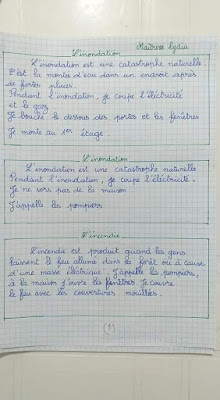 Maîtresse Lydia
L'inondation
L'inondation est une catastrophe naturelle
C'est la montée d'eau dans un endroit après
de fortes pluies.
Pendant l'inondation, je coupe l'éléctricité
et le gaz
Je bouche le dessous des portes et les fenêtres
Je monte au 1er étage
L'inondation
L'inondation est une catastrophe naturelle
Pendant l'inondation, je coupe l'éléctricité.
Je ne sors pas de la maison
J'appelle les pompiers
L'incendie
L'incendie est produit quand les gens
laissent le feu allumé dans la forêt ou à cause
d'une masse éléctrique. J'appelle les pompiers,
à la maison j'ouvre les fenêtres. Je couvre
le feu avec les couvertures mouillées.
(1)